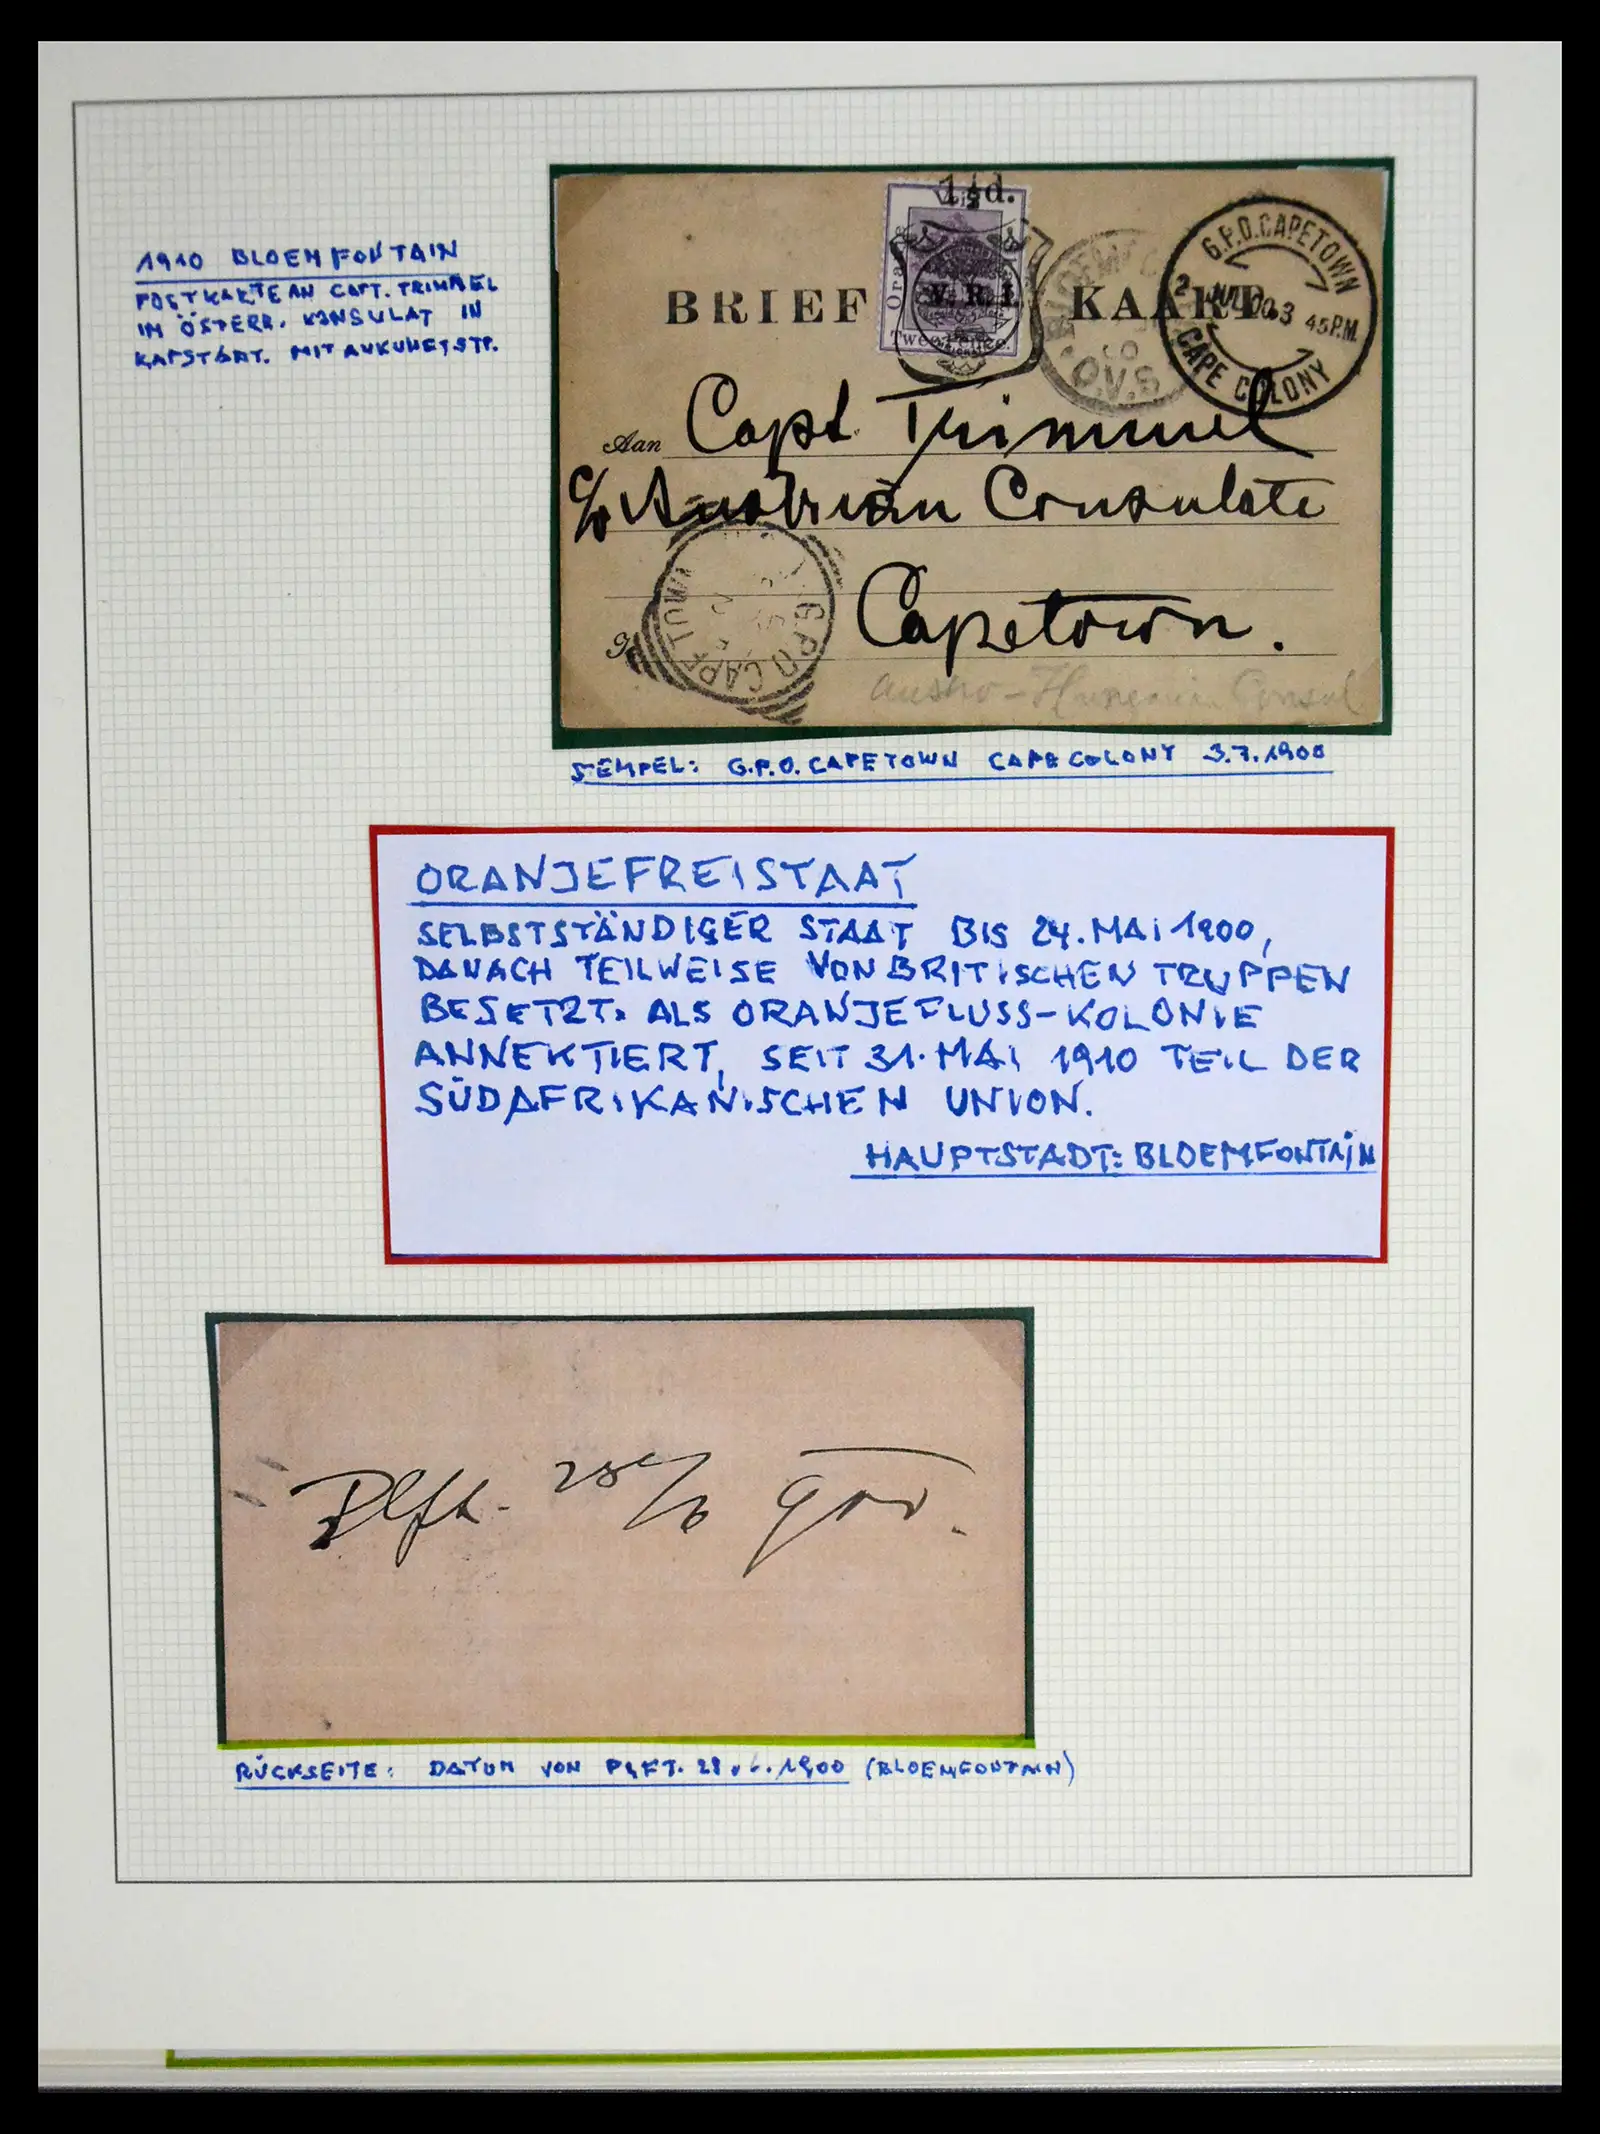 1910 BLOEMFONTAIN
POSTKARTE AN CAPT. TRIMMEL
IM ÖSTERR. KONSULAT IN
KAPSTADT. MIT ANKUNFTSTP.
1½d.
V.R.I.
Twee Pence.
BRIEF KAART.
G.P.O. CAPETOWN
2 JUL 00 3 45 P.M.
CAPE COLONY
O.V.S.
Aan Capt Trimmel
c/o Austrian Consulate
G.P.O. CAPETOWN
Capetown.
Austro-Hungarian Consul
STEMPEL: G.P.O. CAPETOWN CAPE COLONY 3.7.1900
ORANJEFREISTAAT
SELBSTSTÄNDIGER STAAT BIS 24. MAI 1900,
DANACH TEILWEISE VON BRITISCHEN TRUPPEN
BESETZT. ALS ORANJEFLUSS-KOLONIE
ANNEKTIERT, SEIT 31. MAI 1910 TEIL DER
SÜDAFRIKANISCHEN UNION.
HAUPTSTADT: BLOEMFONTAIN
Blft. 28/6 900.
RÜCKSEITE: DATUM VON 28.6.1900 (BLOEMFONTAIN)